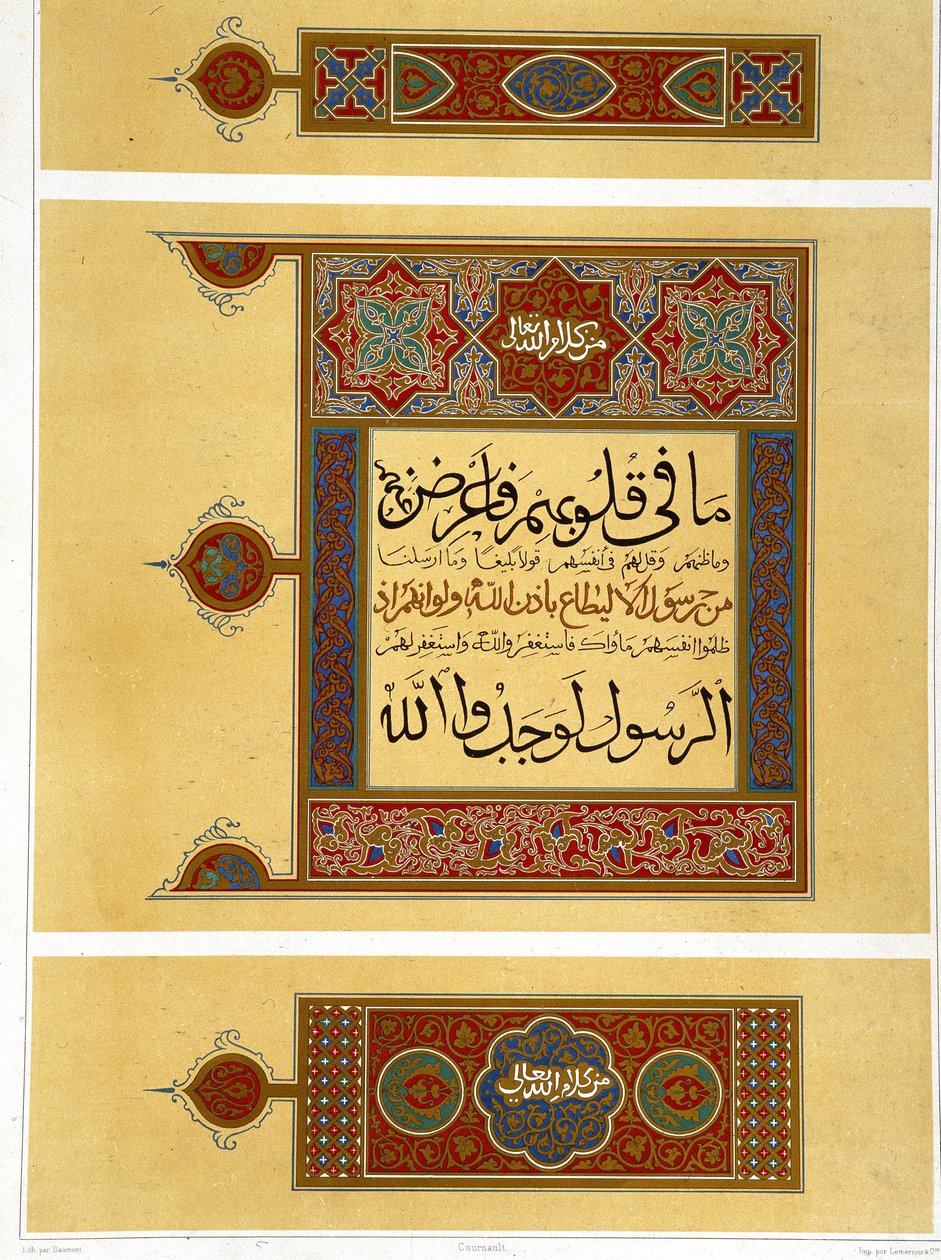 من كلام الله تعالى
مَا فى قُلُوبِهِمْ فَاَعْرِضْ
وقل لهُمْ فى أنفسهم قولاً بَلِيغًا وَمَا ارسَلنَا
من رسول الا ليطاع باذن اللّه ولو انهم اذ
ظلموا انفسهم ماؤاك فاستغفر واللّه واستغفر لهم
الرَّسول لَوَجَدُوا اللَّه
من كلام الله تعالى
Lith. par Daumont.
Cournault.
Imp. par Lemercier & Cie